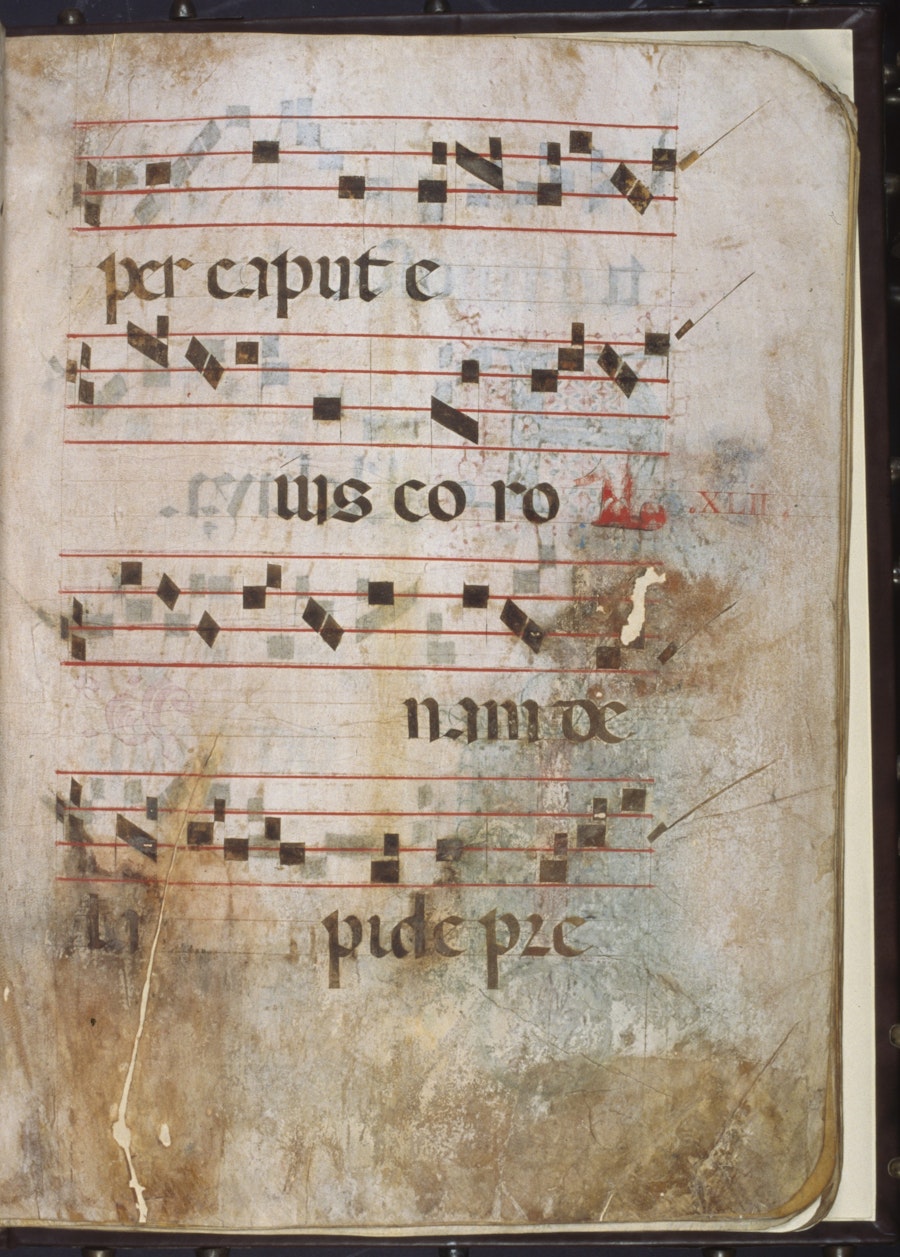 per caput e
ius co ro .XLII.
nam de
la pide pre